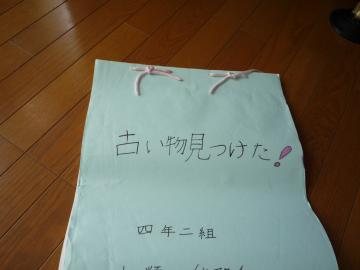 古い物見つけた!
四年二組